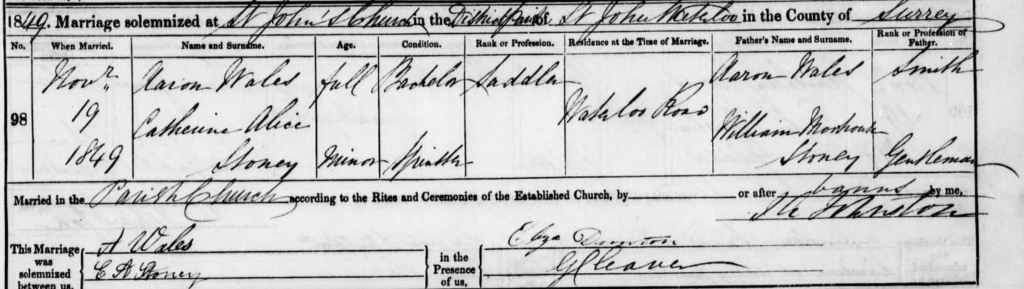 1849. Marriage solemnized at St John's Church in the District Parish of St John Waterloo in the County of Surrey
No. When Married. Name and Surname. Age. Condition. Rank or Profession. Residence at the Time of Marriage. Father's Name and Surname. Rank or Profession of Father.
98 Novr. 19 1849
Aaron Wales full Bachelor Saddler Waterloo Road Aaron Wales Smith
Catherine Alice Stoney Minor Spinster William Stoney Gentleman
Married in the Parish Church according to the Rites and Ceremonies of the Established Church, by or after banns by me,
Johnston
This Marriage was solemnized between us, A Wales
C A Stoney
in the Presence of us, Eliza
G Cleaver